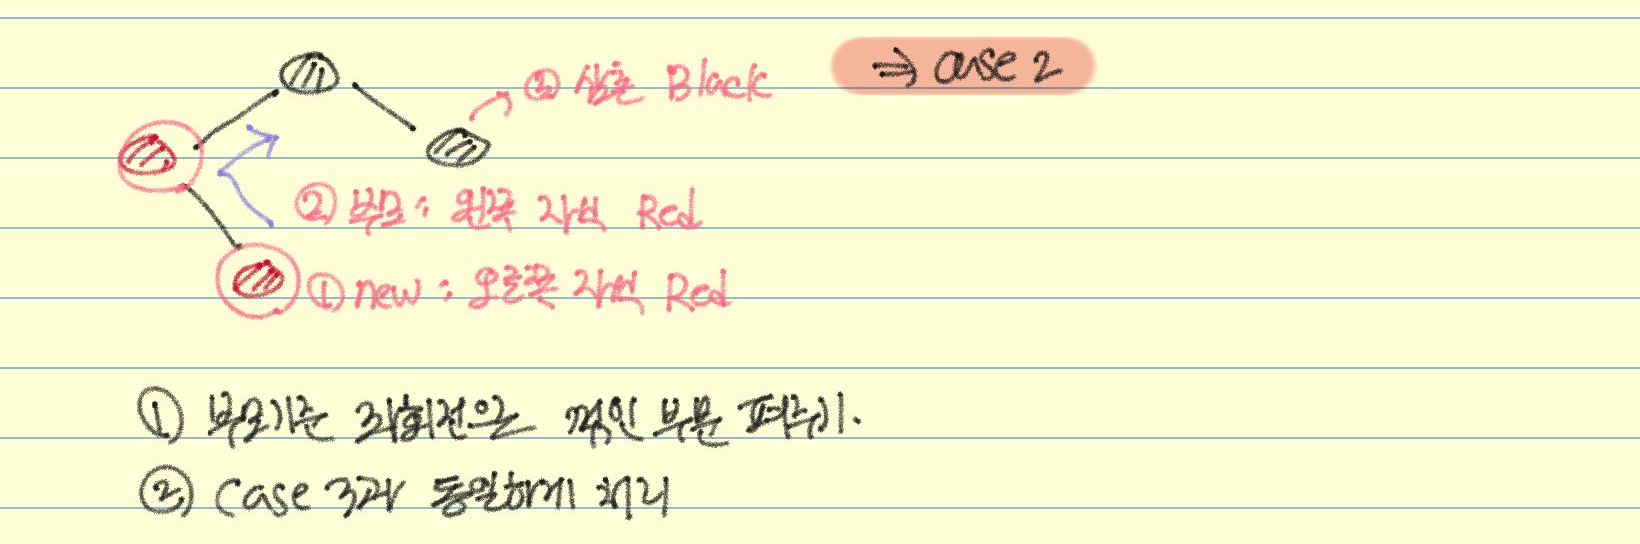 ③ 삼촌 Black
⇒ case 2
② 부모 : 왼쪽 자식 Red
① new : 오른쪽 자식 Red
① 부모기준 좌회전으로 꺾인 부분 펴주기.
② Case 3과 동일하게 처리